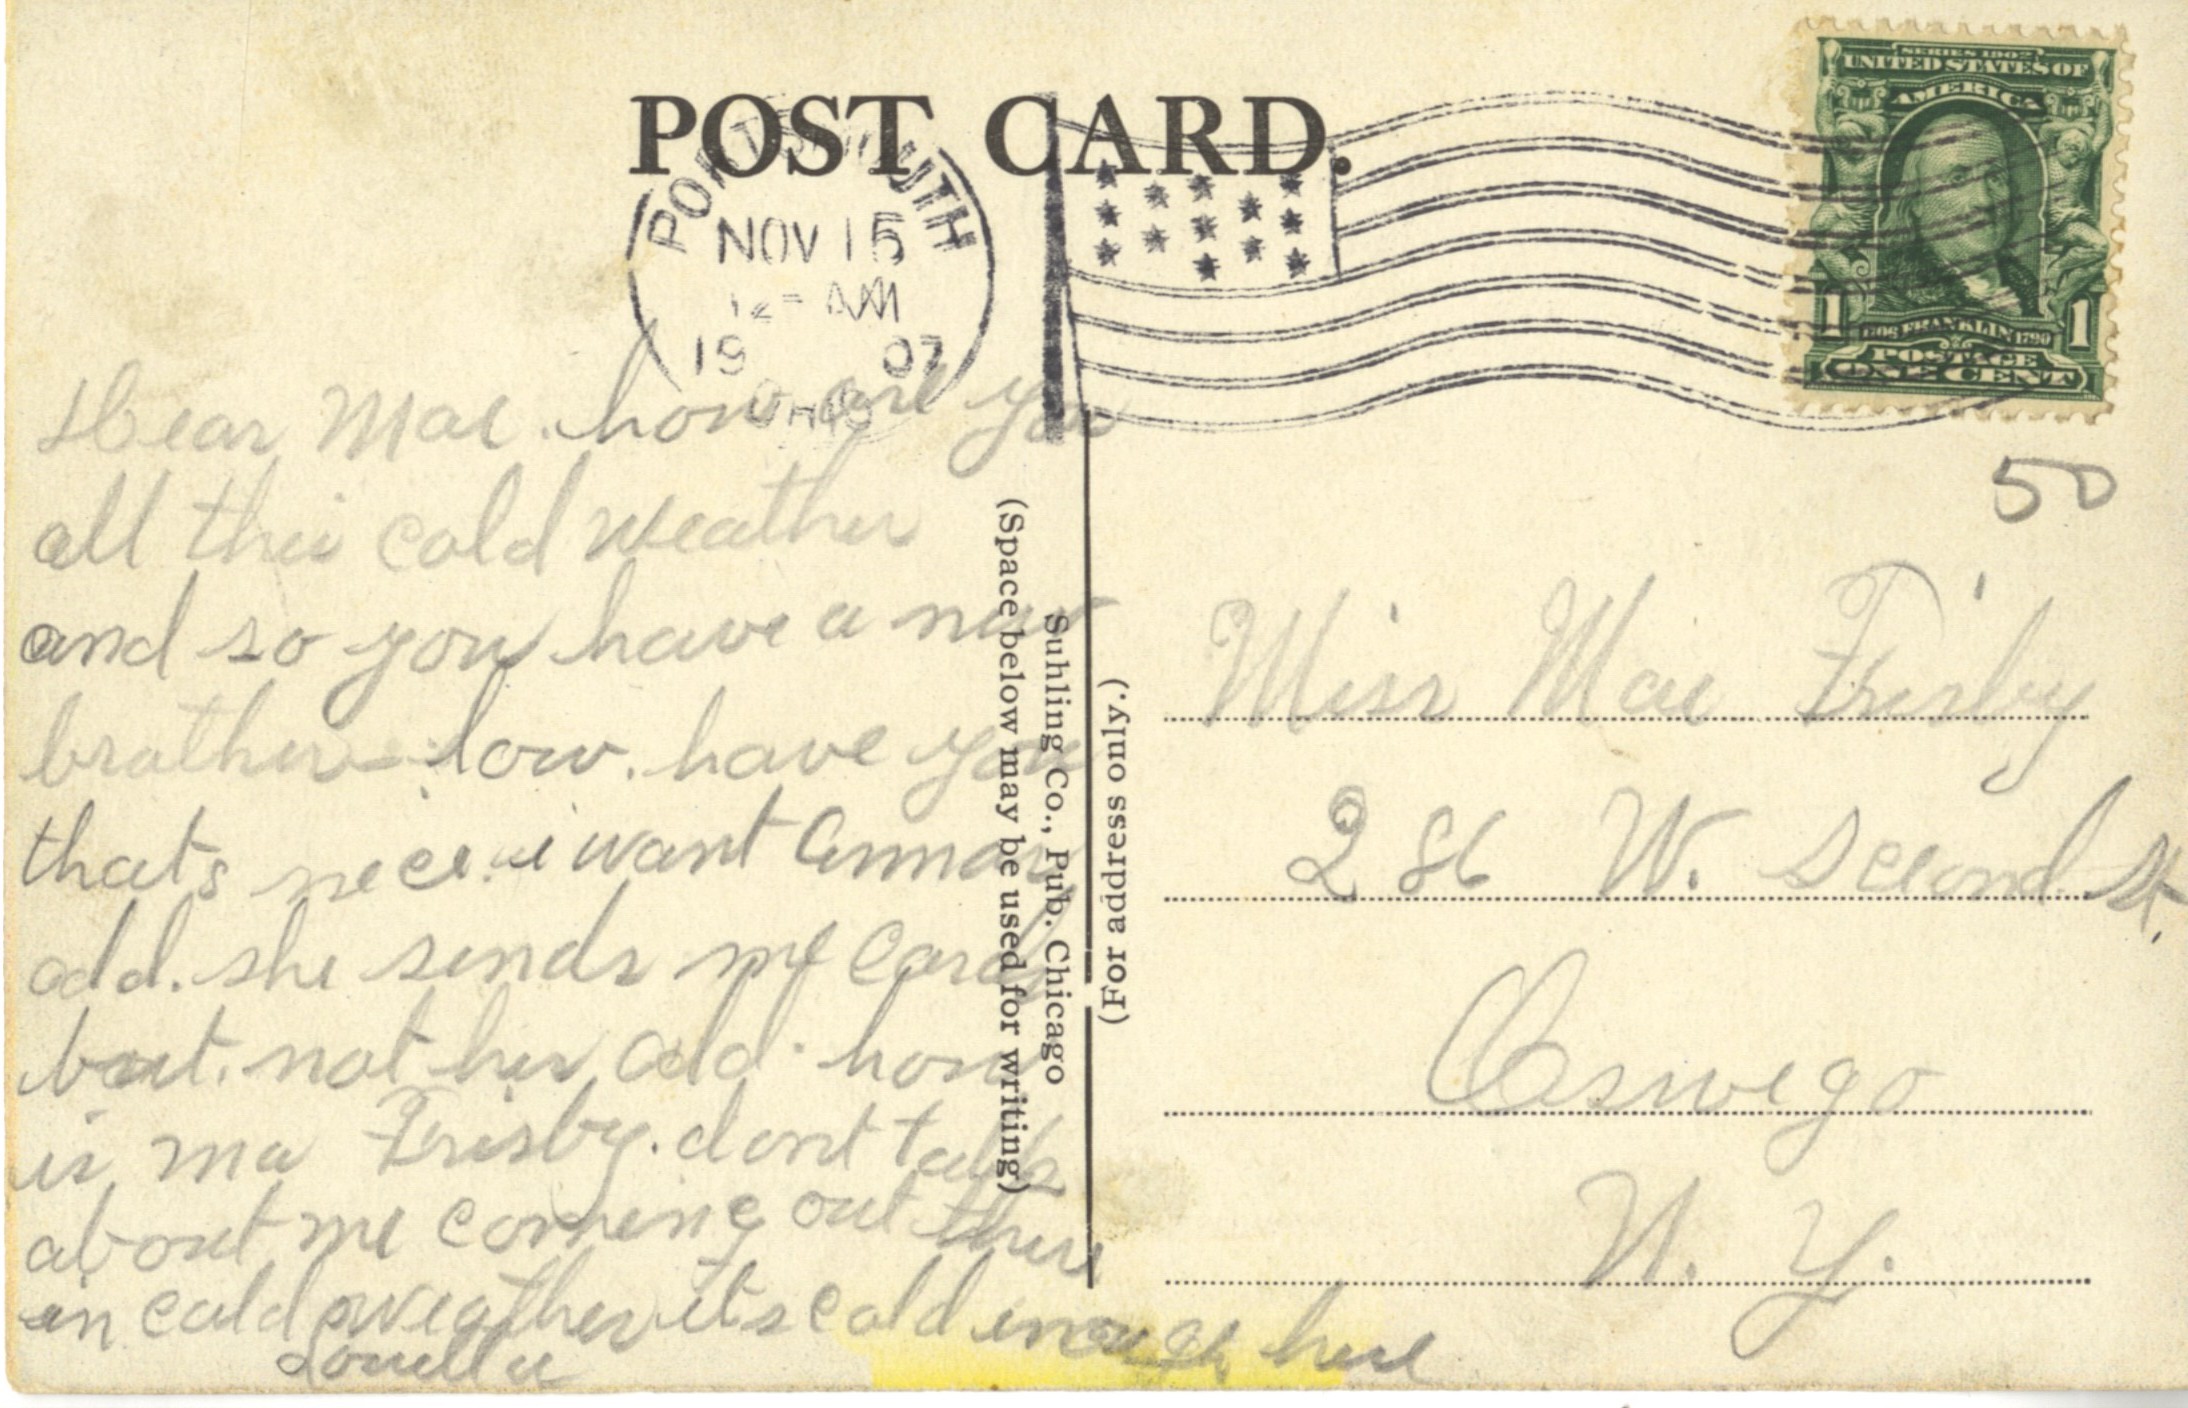 POST CARD.
PORTSMOUTH
NOV 15
12 - AM
19 07
OHIO
SERIES 1902
UNITED STATES OF
AMERICA
1 1706 FRANKLIN 1790 1
POSTAGE
ONE CENT
50
Dear Mae. how are you
all this cold weather
and so you have a new
brother-in low. have you
thats nece. i want Annas
add. she sends me Cards
but. not her add. how
is ma Frisby. dont talk
about me comeing out there
in cold weather its cold enough here
Louella
(Space below may be used for writing)
Suhling Co., Pub. Chicago
(For address only.)
Miss Mae Frisby
286 W. Second St.
Oswego
N. Y.